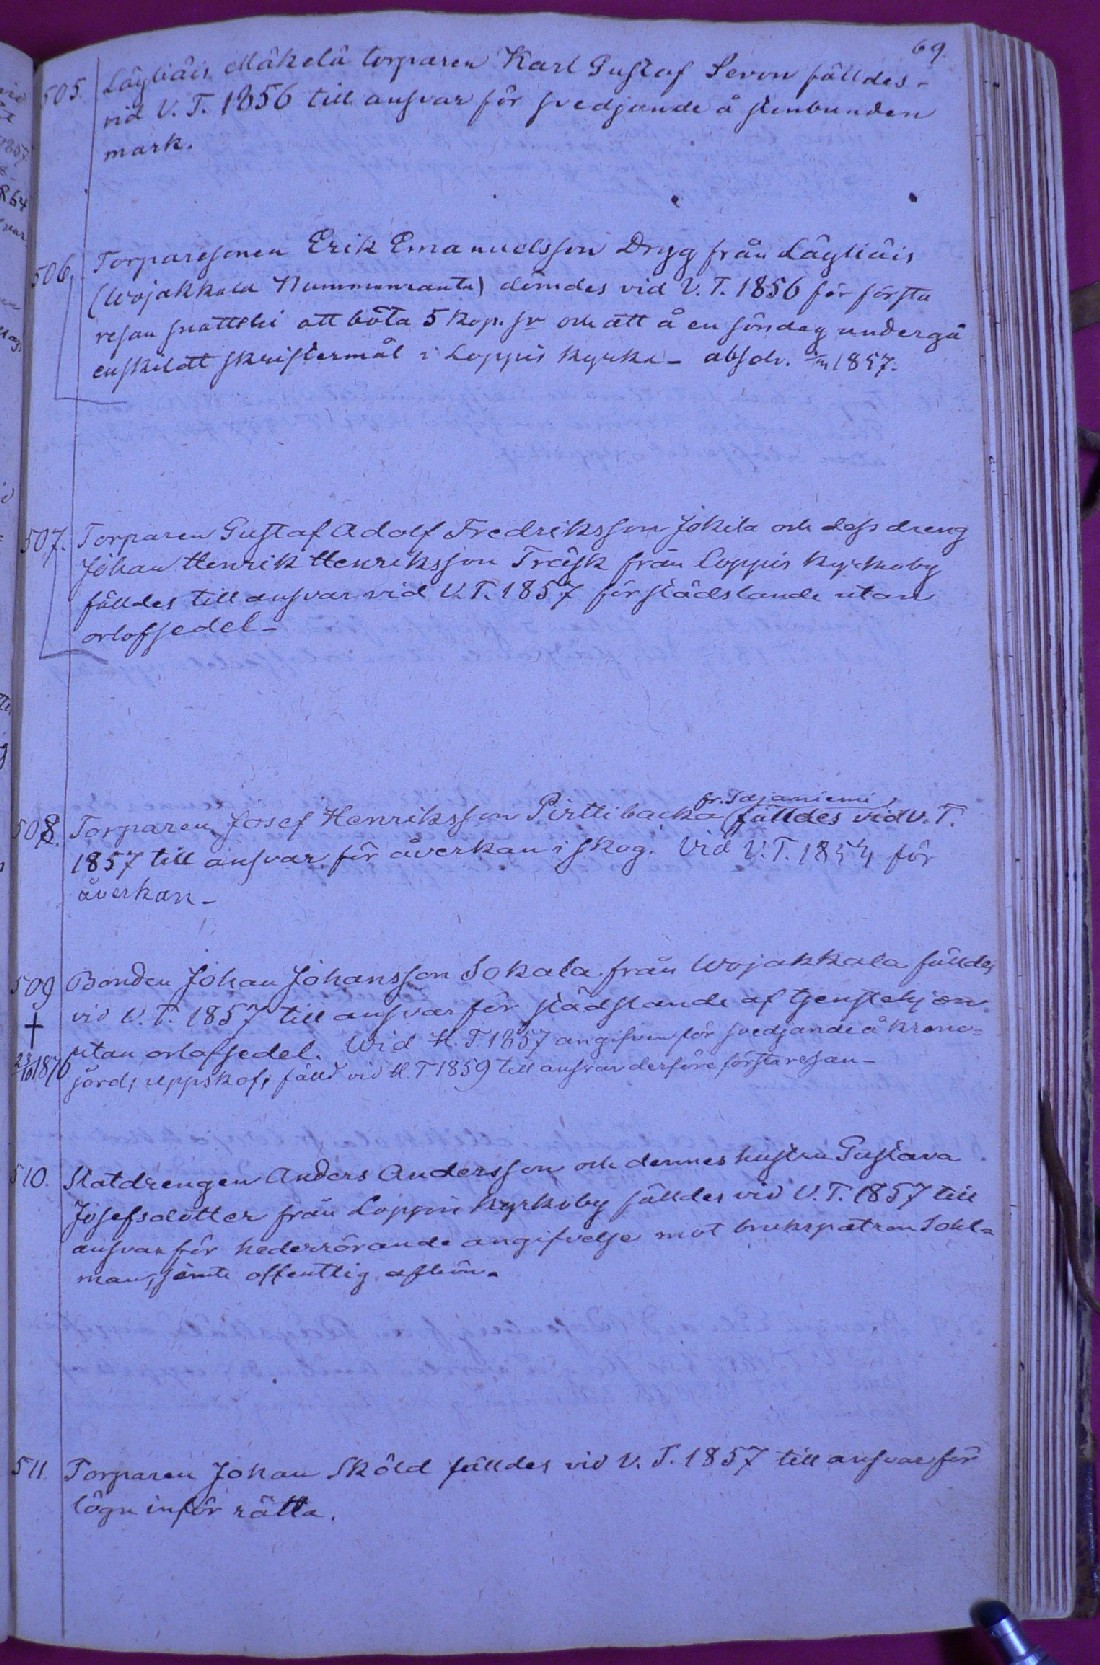 69.
505. Läyliäis Mäkelä torparen Karl Gustaf Sevon fälldes
vid V. T. 1856 till ansvar för svedjande å stenbunden
mark.
506. Torparesonen Erik Emanuelsson Drygg från Läyliäis
(Wojakkala Nummenranta) dömdes vid V. T. 1856 för första
resan snatteri att böta 5 kop. sr och att å en söndag undergå
enskildt skriftermål i Loppis kyrka - absolv. 1857.
507. Torparen Gustaf Adolf Fredriksson Jokila och dess dreng
Johan Henrik Henriksson Träsk från Loppis Kyrkoby
fälldes till ansvar vid V. T. 1857 för städslande utan
orlofsedel -
fr. Sajaniemi
508. Torparen Josef Henriksson Pirttibacka fälldes vid V. T.
1857 till ansvar för åverkan i skog. Vid V. T. 1854 för
åverkan -
509 Bonden Johan Johansson Sokala från Wojakkala fälldes
vid V. T. 1857 till ansvar för städslande af tjenstehjon
utan orlofsedel. Wid H. T. 1857 angifven för svedjande å krono=
1876 jord, uppskof, fälld vid H. T 1859 till ansvar derföre första resan -
510. Statdrengen Anders Andersson och dennes hustru Gustava
Josefsdotter från Loppis Kyrkoby fälldes vid V. T. 1857 till
ansvar för hederrörande angifvelse mot brukspatron Sohl=
man, jemte offentlig afbön.
511. Torparen Johan Sköld fälldes vid V. T. 1857 till ansvar för
lögn inför rätta.